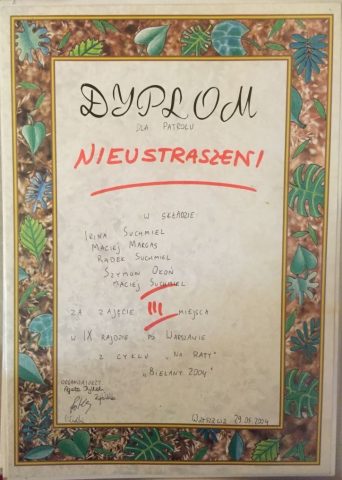 DYPLOM
DLA PATROLU
NIEUSTRASZENI
W SKŁADZIE
IRINA SUCHMIEL
MACIEJ MARGAS
RADEK SUCHMIEL
SZYMON OKOŃ
MACIEJ SUCHMIEL
ZA ZAJĘCIE III MIEJSCA
W IX RAJDZIE PO WARSZAWIE
Z CYKLU „NA RATY"
„BIELANY 2004"
ORGANIZATORZY
Agata
WARSZAWA 29.05.2004